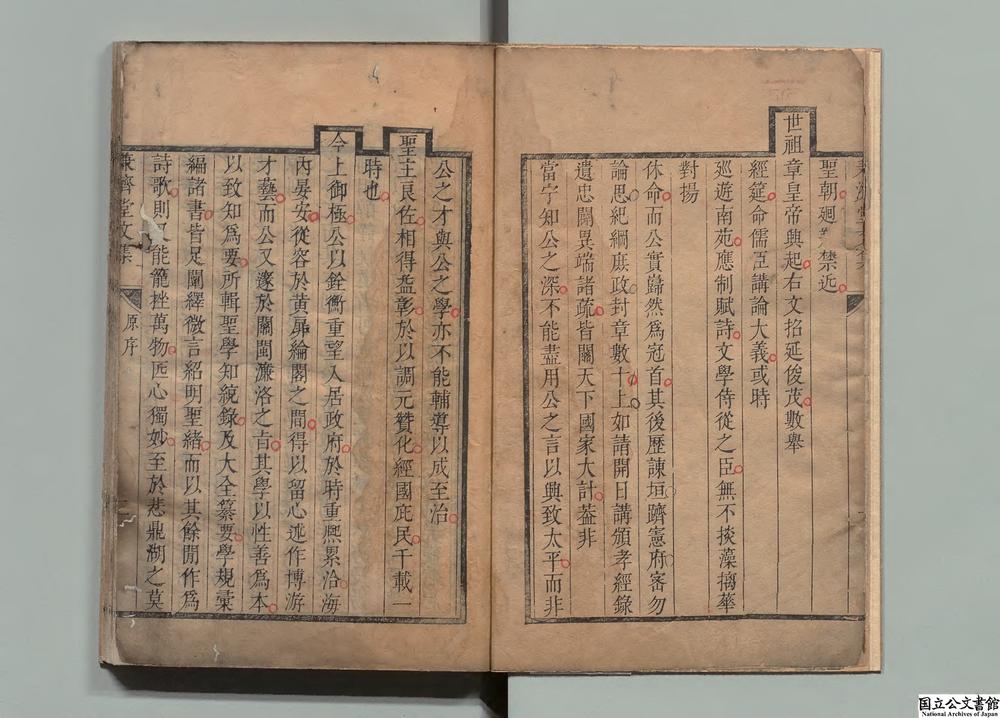 聖朝廻禁近
世祖章皇帝興起右文招延俊茂數舉
經筵命儒臣講論大義或時
廵遊南苑應制賦詩文學侍從之臣無不掞藻摛華
對揚
休命而公實巋然爲冠首其後歷諫垣躋憲府密勿
論思紀綱庶政封章數十上如請開日講頒孝經錄
遺忠闢異端諸疏皆關天下國家大計葢非
當宁知公之深不能盡用公之言以興致太平而非
公之才與公之學亦不能輔導以成至治
聖主良佐相得益彰於以調元贊化經國庇民千載一
時也
今上御極公以銓衡重望入居政府於時重熈累洽海
內晏安從容於黃扉綸閣之間得以留心述作博游
才藝而公又邃於關閩濂洛之旨其學以性善爲本
以致知爲要所輯聖學知統錄及大全纂要學規彙
編諸書皆足闡繹微言紹明聖緒而以其餘閒作爲
詩歌則又能籠挫萬物匠心獨妙至於悲鼎湖之莫
兼濟堂文集
原序
国立公文書館
National Archives of Japan